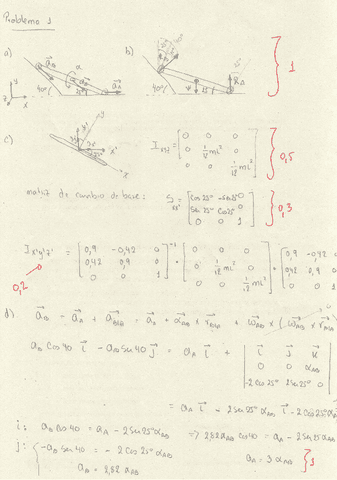 Problema 1
a)
b)
1
c)
I_xyz = [0 0 0; 0 1/12 ml² 0; 0 0 1/12 ml²]
0,5
matriz de cambio de base: S = [cos 25º -sen 25º 0; sen 25º cos 25º 0; 0 0 1]
0,3
I x'y'z' = [0,9 -0,42 0; 0,42 0,9 0; 0 0 1]⁻¹ · [0 0 0; 0 1/12 ml² 0; 0 0 1/12 ml²] · [0,9 -0,42 0; 0,42 0,9 0; 0 0 1]
0,2
d) a_B = a_A + a_B/A = a_A + α_AB × r_B/A + ω_AB × (ω_AB × r_B/A
a_B cos 40 i - a_B sen 40 j = a_A i + | i j k; 0 0 α_AB; -2 cos 25º 2 sen 25º 0 |
= a_A i - 2 sen 25º α_AB i - 2 cos 25º α
i: a_B cos 40 = a_A - 2 sen 25º α_AB => 2,82 α_AB cos 40 = a_A - 2 sen 25 α_AB
j: -a_B sen 40 = -2 cos 25º α_AB
a_B = 2,82 α_AB
a_A = 3 α_AB
1